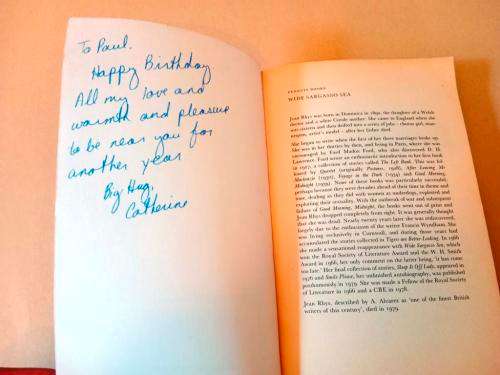 To Paul.
Happy Birthday.
All my love and
warmth and pleasure
to be near you for
another year
Big Hug,
Catherine
PENGUIN BOOKS
WIDE SARGASSO SEA
Jean Rhys was born in Dominica in 1890, the daughter of a Welsh
doctor and a white Creole mother. She came to England when she
was sixteen and then drifted into a series of jobs – chorus girl, man-
nequin, artist's model – after her father died.
She began to write when the first of her three marriages broke up.
She was in her thirties by then, and living in Paris, where she was
encouraged by Ford Madox Ford, who also discovered D. H.
Lawrence. Ford wrote an enthusiastic introduction to her first book
in 1927, a collection of stories called The Left Bank. This was fol-
lowed by Quartet (originally Postures, 1928), After Leaving Mr
Mackenzie (1930), Voyage in the Dark (1934) and Good Morning,
Midnight (1939). None of these books was particularly successful,
perhaps because they were decades ahead of their time in theme and
tone, dealing as they did with women as underdogs, exploited and
exploiting their sexuality. With the outbreak of war and subsequent
failure of Good Morning, Midnight, the books went out of print and
Jean Rhys dropped completely from sight. It was generally thought
that she was dead. Nearly twenty years later she was rediscovered,
largely due to the enthusiasm of the writer Francis Wyndham. She
was living reclusively in Cornwall, and during those years had
accumulated the stories collected in Tigers are Better-Looking. In 1966
she made a sensational reappearance with Wide Sargasso Sea, which
won the Royal Society of Literature Award and the W. H. Smith
Award in 1966, her only comment on the latter being, 'It has come
too late.' Her final collection of stories, Sleep It Off Lady, appeared in
1976 and Smile Please, her unfinished autobiography, was published
posthumously in 1979. She was made a Fellow of the Royal Society
of Literature in 1966 and a CBE in 1978.
Jean Rhys, described by A. Alvarez as 'one of the finest British
writers of this century', died in 1979.